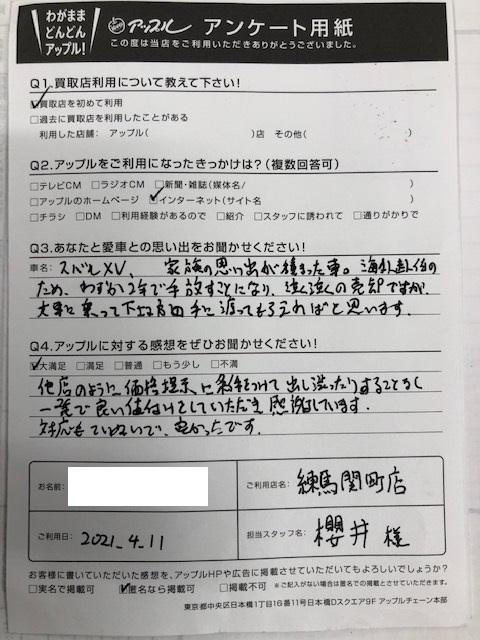 わがまま
どんどん
アップル!
Apple アップル アンケート用紙
この度は当店をご利用いただきありがとうございました。
Q1.買取店利用について教えて下さい!
☑買取店を初めて利用
□過去に買取店を利用したことがある
利用した店舗: アップル( )店 その他( )
Q2.アップルをご利用になったきっかけは?(複数回答可)
□テレビCM □ラジオCM □新聞・雑誌(媒体名/ )
□アップルのホームページ ☑インターネット(サイト名 )
□チラシ □DM □利用経験があるので □紹介 □スタッフに誘われて □通りがかりで
Q3.あなたと愛車との思い出をお聞かせください!
車名: スバルXV、 家族の思い出が積まった車。海外赴任の
ため、わずか2年で手放すことになり、泣く泣くの売却ですが、
大事に乗って下さる方の手に渡ってもらえればと思います。
Q4.アップルに対する感想をぜひお聞かせください!
☑大満足 □満足 □普通 □もう少し □不満
他店のように価格提示に条件をつけて出し渋ったりすることもなく
一発で良い値付けをしていただき感謝しています。
対応もていねいで、良かったです。
お名前:
ご利用店名: 練馬関町店
ご利用日: 2021.4.11
担当スタッフ名: 櫻井 様
お客様に書いていただいた感想を、アップルHPや広告に掲載させていただいてもよろしいでしょうか?
□実名で掲載可 ☑匿名なら掲載可 □掲載不可 ※ご記入がない場合は匿名での掲載とさせていただきます。
東京都中央区日本橋1丁目16番11号日本橋Dスクエア9F アップルチェーン本部